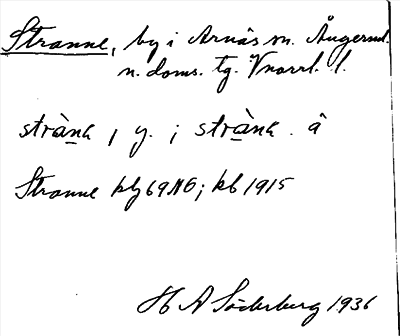 Stranne, by i Arnäs sn. Ångerml.
n. doms. tg. Vnorrl. l.
stràna, y. i stràna. å
Stranne kbg 69 NÖ; kb 1915
H A Söderberg 1936